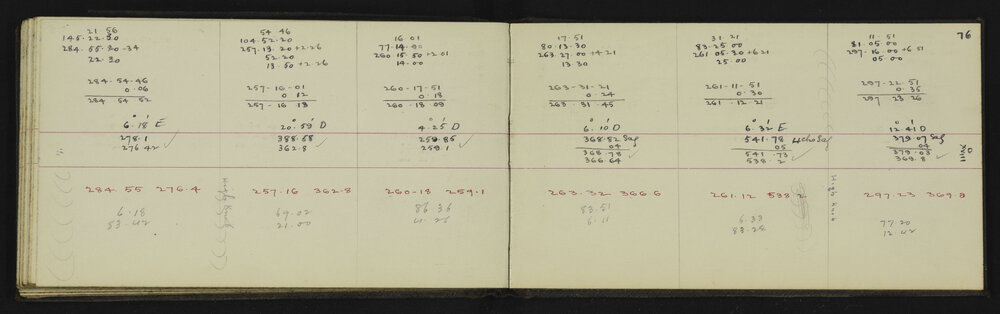 21 56
145.22.30
284.55.20 -34
22.30
284.54.46
0.06
284 54 52
6.18 E
278.1
276 42
284 55 276.4
6.18
83.42
54 46
104.52.20
257.13.20 +2.26
52.20
13.50 +2.26
257-16-01
0 12
257-16 13
20.59 D
388.58
362.8
257.16 362.8
69.02
21.00
16.01
77.14.00
260.15.50 +2.01
14.00
260-17-51
0.18
260.18 09
4.25 D
259.85
259.1
260-18 259.1
86 36
17.51
80.13.30
263.27.00 +4.21
13.30
263-31-21
0.24
263.31.45
6.10 D
368.82 Sag
04
368.78
366.64
263.32 366 6
83.51
6.11
31.21
83.25.00
261 05.30 +6 21
25.00
261-11-51
0.30
261.12.21
6.32 E
541.78 4 cho Sag
05
541.73
538.2
261.12 538
6.33
83.24
High Knob
11.51
81.05.00
297.16.00 +6 51
05.00
297-22-51
0.35
297 23 26
12 41 D
379.07 Sag
04
379.03
369.8
297.23 369.8
77.20
12 42
76
XVIII